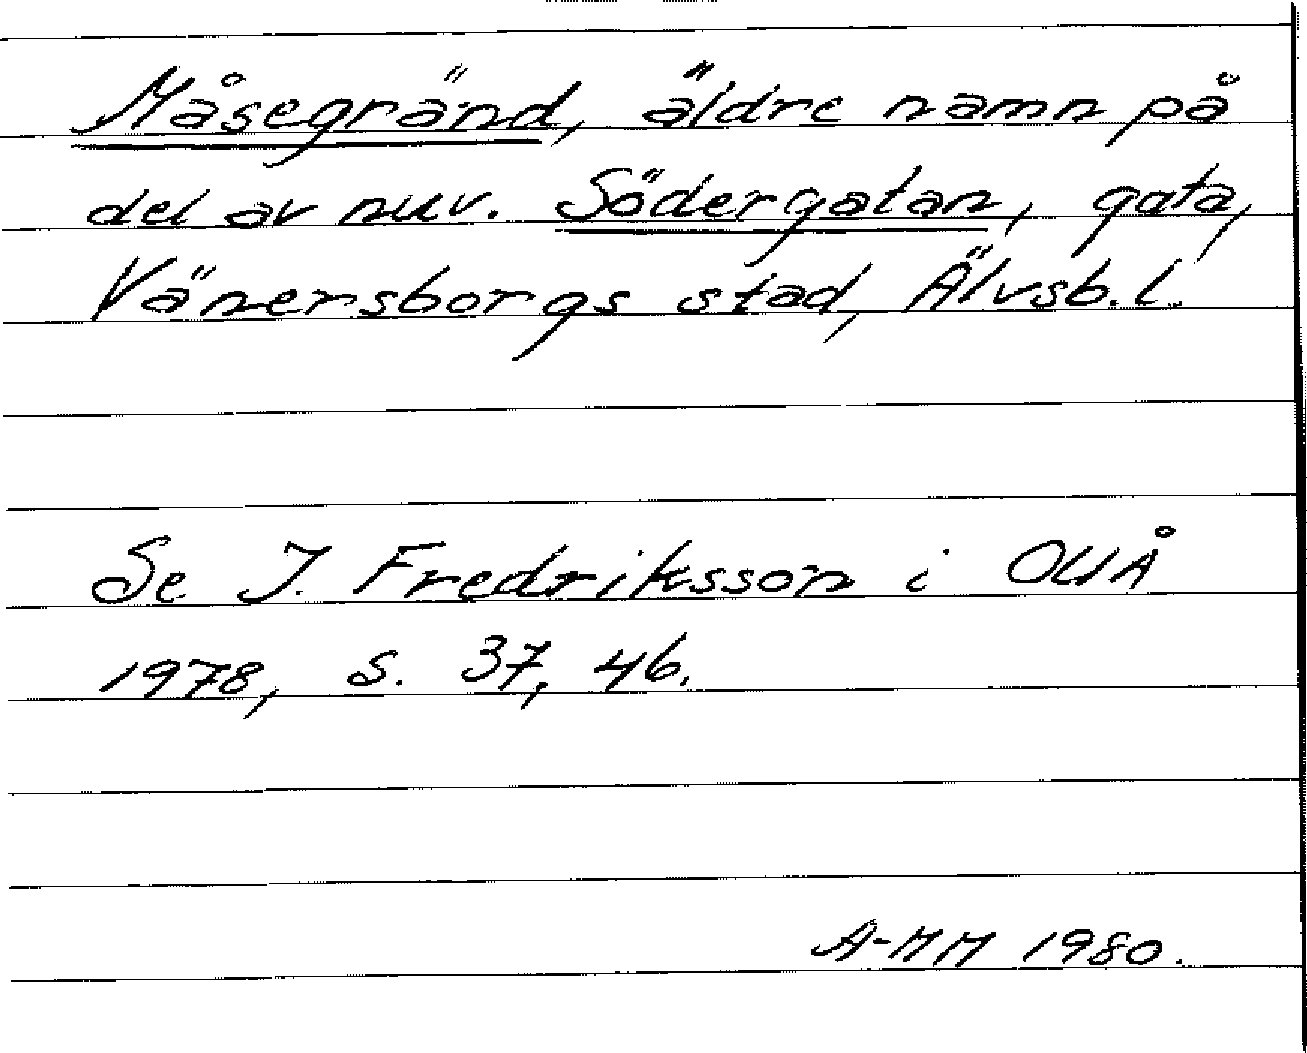 Måsegränd, äldre namn på
del av nuv. Södergatan, gata,
Vänersborgs stad, Älvsb. l.
Se I. Fredriksson i OUÅ
1978, s. 37, 46.
A-MM 1980.